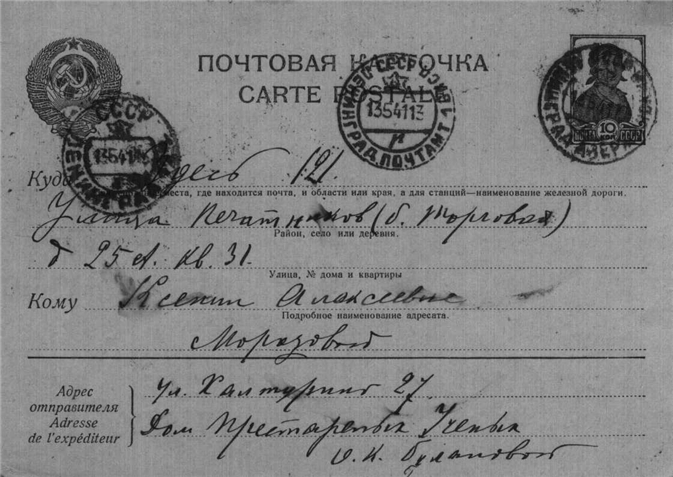 ПОЧТОВАЯ КАРТОЧКА
CARTE POSTALE
СССР
ЛЕНИНГРАД
13541 13
СССР ЛЕНИНГРАД ПОЧТАМТ
13541 13
ПОЧТА 10 КОП. СССР
Куда Здесь 121.
места, где находится почта, и области или края, а для станций—наименование железной дороги.
Улица Печатников (б. Торговая)
Район, село или деревня.
д 25 А. кв. 31.
Улица, № дома и квартиры
Кому Ксении Алексеевне
Подробное наименование адресата.
Морозовой
Адрес отправителя
Adresse de l'expéditeur
ул. Халтурина 27
Дом Престарелых Ученых
О. К. Булановой